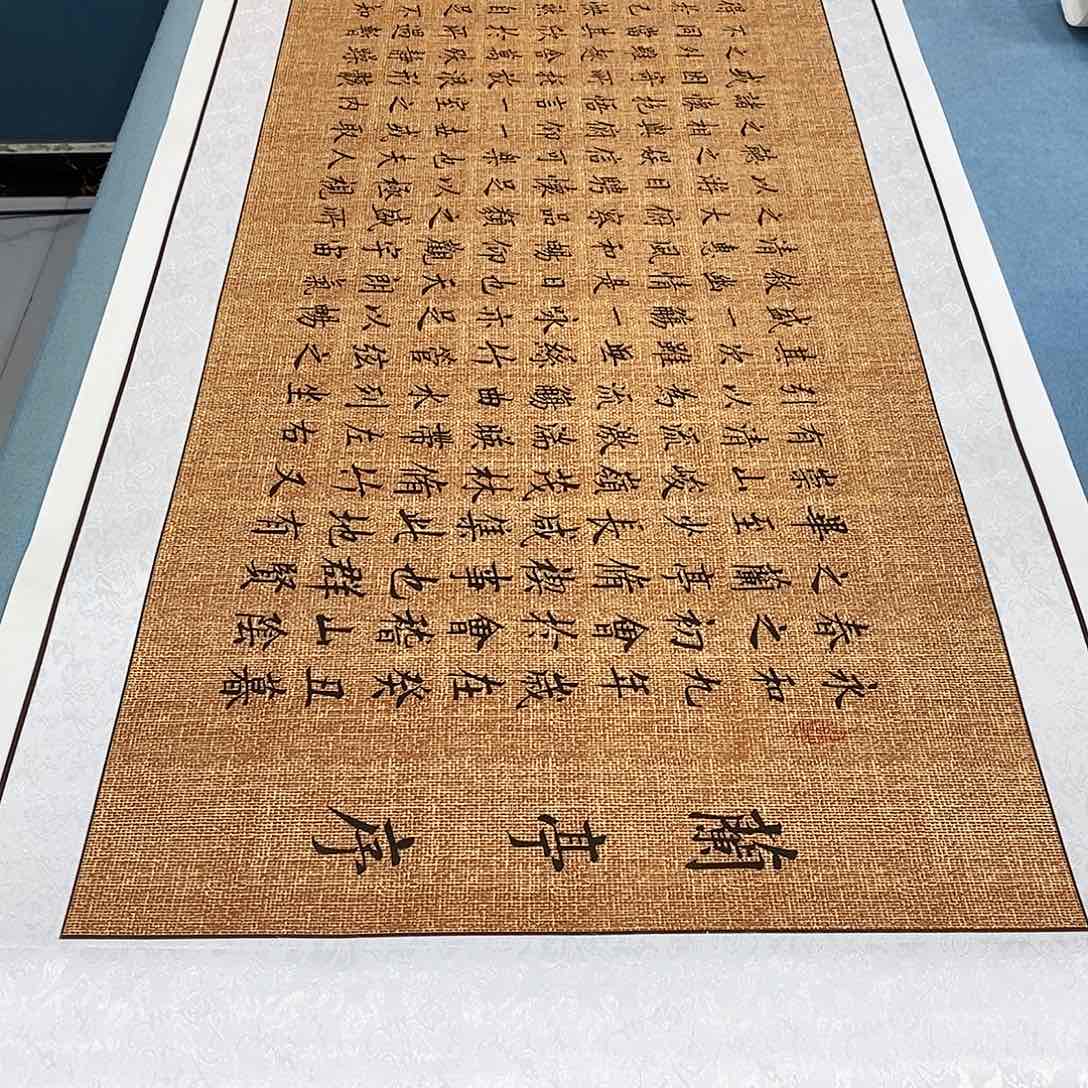 蘭亭序
永和九年歲在癸丑暮
春之初會於會稽山陰
之蘭亭脩禊事也群賢
畢至少長咸集此地有
崇山峻嶺茂林脩竹又
有清流激湍暎帶左右
引以為流觴曲水列坐
其次雖無絲竹管絃之
盛一觴一詠亦足以暢
敘幽情是日也天朗氣
清惠風和暢仰觀宇宙
之大俯察品類之盛所
以遊目騁懷足以極視
聽之娛信可樂也夫人
之相與俯仰一世或取
諸懷抱悟言一室之內
或因寄所託放浪形骸
之外雖趣舍萬殊靜躁
不同當其欣於所遇暫
得於己快然自足不知